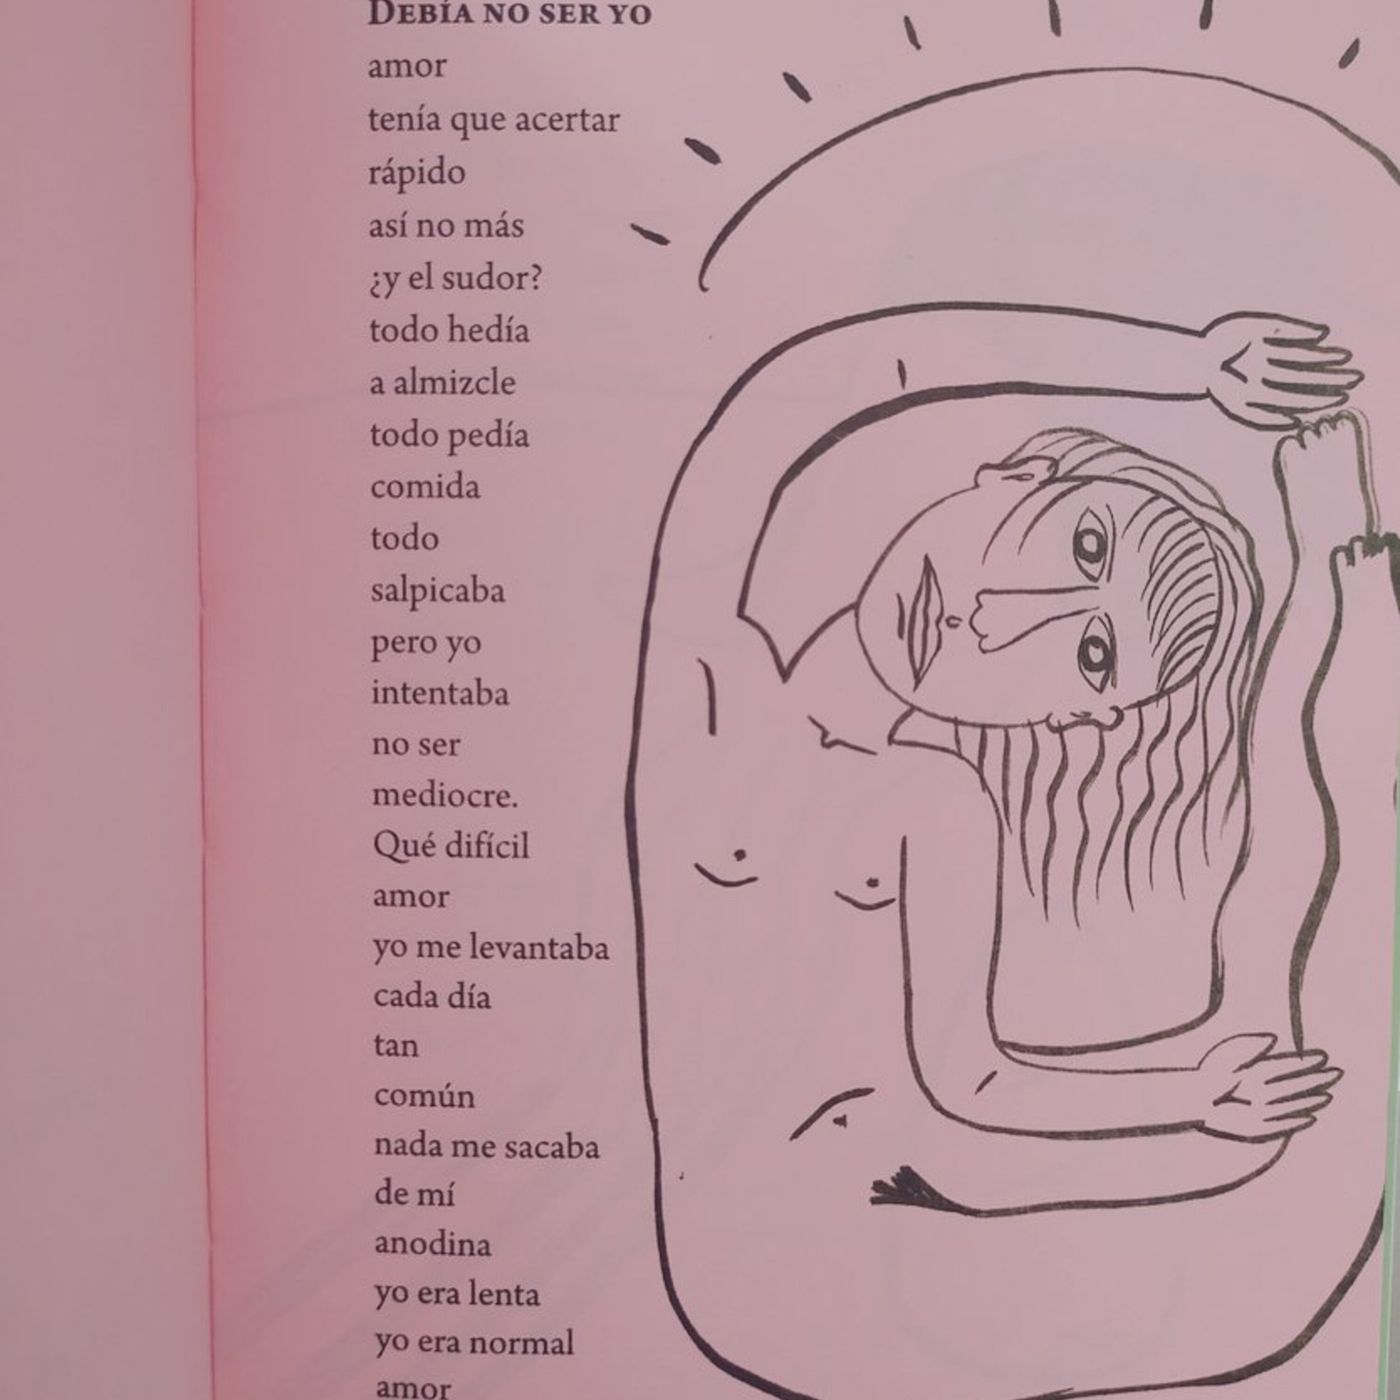 DEBÍA NO SER YO
amor
tenía que acertar
rápido
así no más
¿y el sudor?
todo hedía
a almizcle
todo pedía
comida
todo
salpicaba
pero yo
intentaba
no ser
mediocre.
Qué difícil
amor
yo me levantaba
cada día
tan
común
nada me sacaba
de mí
anodina
yo era lenta
yo era normal
amor